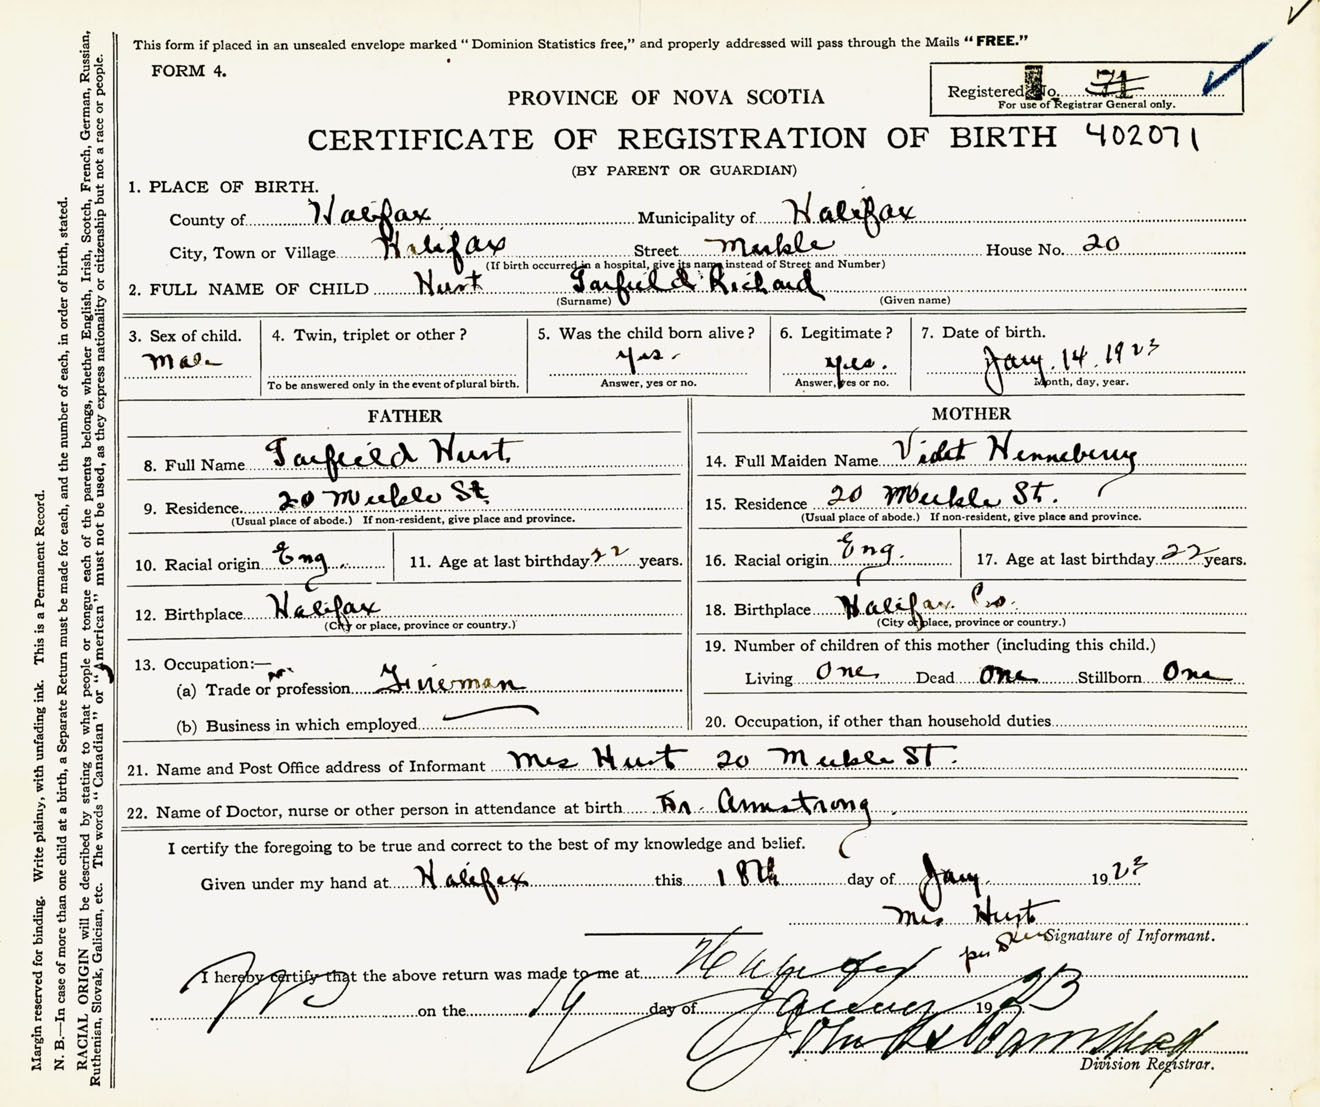 This form if placed in an unsealed envelope marked "Dominion Statistics free," and properly addressed will pass through the Mails "FREE."
FORM 4.
Registered No. 71
For use of Registrar General only.
PROVINCE OF NOVA SCOTIA
CERTIFICATE OF REGISTRATION OF BIRTH 402071
(BY PARENT OR GUARDIAN)
1. PLACE OF BIRTH.
County of Halifax Municipality of Halifax
City, Town or Village Halifax Street House No. 20
(If birth occurred in a hospital, give its name instead of Street and Number)
2. FULL NAME OF CHILD Hurst Garfield Richard
(Surname) (Given name)
3. Sex of child. 4. Twin, triplet or other? 5. Was the child born alive? 6. Legitimate? 7. Date of birth.
Male yes. yes. Jany. 14. 1923
To be answered only in the event of plural birth. Answer, yes or no. Answer, yes or no. Month, day, year.
FATHER
8. Full Name Garfield Hurst
9. Residence 20 St.
(Usual place of abode.) If non-resident, give place and province.
10. Racial origin Eng 11. Age at last birthday 22 years.
12. Birthplace Halifax
(City or place, province or country.)
13. Occupation:—
(a) Trade or profession Fireman
(b) Business in which employed
MOTHER
14. Full Maiden Name Violet Henneberry
15. Residence 20 St.
(Usual place of abode.) If non-resident, give place and province.
16. Racial origin Eng. 17. Age at last birthday 22 years.
18. Birthplace Halifax Co.
(City or place, province or country.)
19. Number of children of this mother (including this child.)
Living One Dead One Stillborn One
20. Occupation, if other than household duties
21. Name and Post Office address of Informant Mrs Hurst 20 St.
22. Name of Doctor, nurse or other person in attendance at birth Dr. Armstrong
I certify the foregoing to be true and correct to the best of my knowledge and belief.
Given under my hand at Halifax this 18th day of Jany. 1923
Mrs Hurst
per
Signature of Informant.
I hereby certify that the above return was made to me at Halifax
on the 19 day of January 1923
John
Division Registrar.
Margin reserved for binding. Write plainly, with unfading ink. This is a Permanent Record.
N. B.—In case of more than one child at a birth, a Separate Return must be made for each, and the number of each, in order of birth, stated.
RACIAL ORIGIN will be described by stating to what people or tongue each of the parents belongs, whether English, Irish, Scotch, French, German, Russian,
Ruthenian, Slovak, Galician, etc. The words "Canadian" or "American" must not be used, as they express nationality or citizenship but not a race or people.